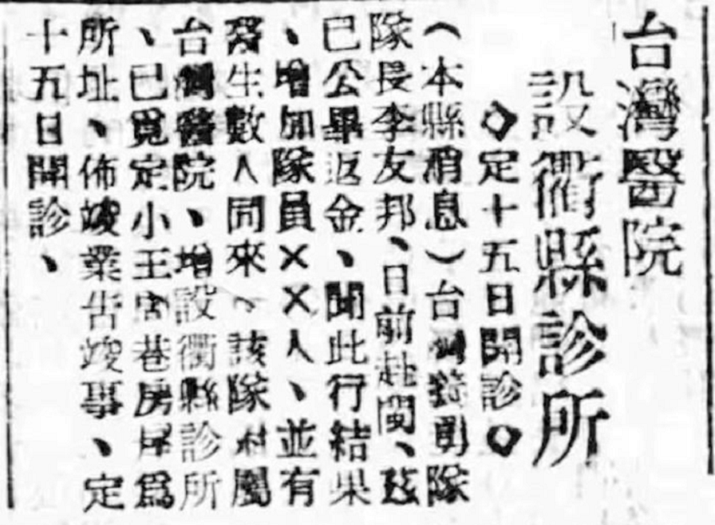 台灣醫院
設衢縣診所
◇定十五日開診◇
(本縣消息)台灣義勇隊
隊長李友邦、日前赴閩、茲
已公畢返金、聞此行結果
、增加隊員××人、並有
醫生數人同來、該隊附屬
台灣醫院、增設衢縣診所
、已覓定小王宮巷房屋爲
所址、佈竣業告竣事、定
十五日開診、